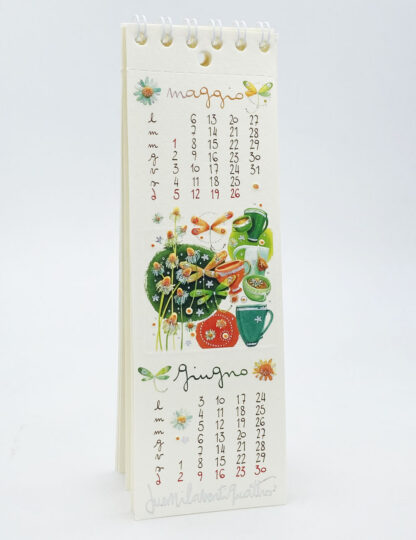 maggio
l 6 13 20 27
m 7 14 21 28
m 1 8 15 22 29
g 2 9 16 23 30
v 3 10 17 24 31
s 4 11 18 25
d 5 12 19 26
giugno
l 3 10 17 24
m 4 11 18 25
m 5 12 19 26
g 6 13 20 27
v 7 14 21 28
s 1 8 15 22 29
d 2 9 16 23 30
DueMilaVentiQuattro